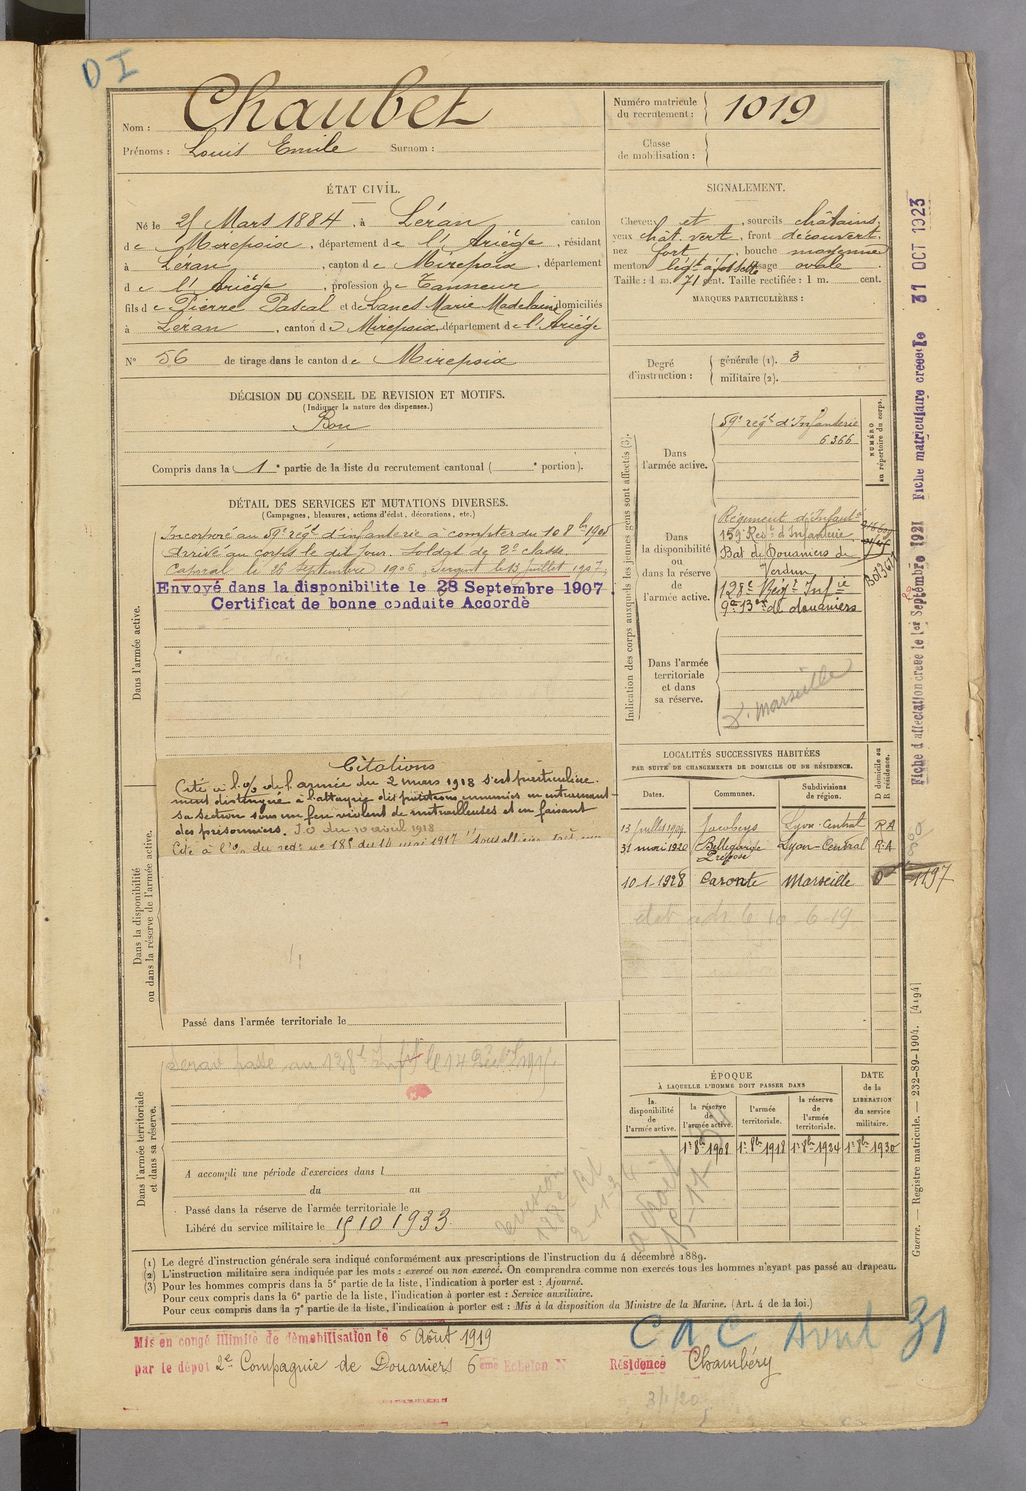 D I
Nom : Chaubet
Prénoms : Louis Emile Surnom :
Numéro matricule du recrutement : 1019
Classe de mobilisation :
ÉTAT CIVIL.
Né le 25 Mars 1884, à Léran canton
de Mirepoix, département de l'Ariège, résidant
à Léran, canton de Mirepoix, département
de l'Ariège, profession de Tanneur
fils de Pierre Pascal et de Lanes Marie Madelaine domiciliés
à Léran, canton de Mirepoix, département de l'Ariège
N° 56 de tirage dans le canton de Mirepoix
SIGNALEMENT.
Cheveux et, sourcils châtains,
yeux chât. vert, front découvert,
nez fort, bouche moyenne
menton visage ovale
Taille : 1 m. 71 cent. Taille rectifiée : 1 m. cent.
MARQUES PARTICULIÈRES :
Degré d'instruction : générale (1). 3
militaire (2).
DÉCISION DU CONSEIL DE REVISION ET MOTIFS.
(Indiquer la nature des dispenses.)
Bon
Compris dans la 1e partie de la liste du recrutement cantonal ( e portion).
DÉTAIL DES SERVICES ET MUTATIONS DIVERSES.
(Campagnes, blessures, actions d'éclat, décorations, etc.)
Dans l'armée active.
Incorporé au 59e régt d'infanterie à compter du 10 8bre 1905
Arrivé au corps le dit jour. Soldat de 2e classe.
Caporal le 26 Septembre 1906, Sergent le 13 juillet 1907,
Envoyé dans la disponibilite le 28 Septembre 1907.
Certificat de bonne conduite Accordé
Citations
Cité à l'o/ de l'armée du 2 mars 1918 s'est particulière-
ment distingué à l'attaque des positions ennemies en entrainant
sa section sous un feu violent de mitrailleuses et en faisant
des prisonniers. J.O du 10 avril 1918
Dans la disponibilité
ou dans la réserve de l'armée active.
Passé dans l'armée territoriale le
Indication des corps auxquels les jeunes gens sont affectés (3).
NUMÉRO au répertoire du corps.
Dans l'armée active.
59e régt d'Infanterie
6366
Dans la disponibilité ou dans la réserve de l'armée active.
Régiment d'Infantie
159 Regt d'Infanterie
Bat de Douaniers de
Verdun
128e Regt Infie
de douaniers
Dans l'armée territoriale et dans sa réserve.
D. Marseille
LOCALITÉS SUCCESSIVES HABITÉES
PAR SUITE DE CHANGEMENTS DE DOMICILE OU DE RÉSIDENCE.
Dates. Communes. Subdivisions de région. D domicile ou R résidence.
13 juillet 1909 Lyon-Central RA
31 mai 1920 Bellegarde Lyon-Central R.A
10-1-1928 Caronte Marseille D 1197
10-6-19
Dans l'armée territoriale
et dans sa réserve.
passé au 128e
A accompli une période d'exercices dans l
du au
Passé dans la réserve de l'armée territoriale le
Libéré du service militaire le 15 10 1933
ÉPOQUE
À LAQUELLE L'HOMME DOIT PASSER DANS
la disponibilité de l'armée active. la réserve de l'armée active. l'armée territoriale. la réserve de l'armée territoriale. DATE de la LIBÉRATION du service militaire.
1er 8bre 1908 1er 8bre 1918 1er 8bre 1924 1er 8bre 1930
(1) Le degré d'instruction générale sera indiqué conformément aux prescriptions de l'instruction du 4 décembre 1889.
(2) L'instruction militaire sera indiquée par les mots : exercé ou non exercé. On comprendra comme non exercés tous les hommes n'ayant pas passé au drapeau.
(3) Pour les hommes compris dans la 5e partie de la liste, l'indication à porter est : Ajourné.
Pour ceux compris dans la 6e partie de la liste, l'indication à porter est : Service auxiliaire.
Pour ceux compris dans la 7e partie de la liste, l'indication à porter est : Mis à la disposition du Ministre de la Marine. (Art. 4 de la loi.)
Mis en congé illimité de démobilisation le 6 Août 1919
par le dépôt 2e Compagnie de Douaniers 6ème Echelon N Résidence Chambéry
C a C Avril 31
Fiche d'affectation créée le 1er Septembre 1921 Fiche matriculaire créée le 31 OCT 1923
Guerre. — Registre matricule. — 232-89-1904. [4194]